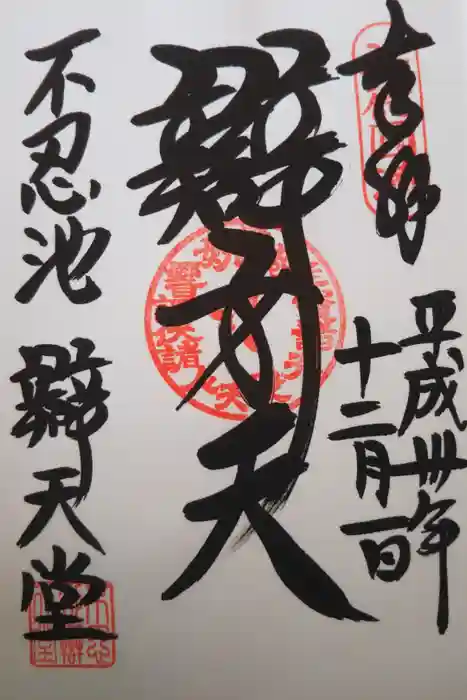 奉拝
平成卅年
十二月一日
辯才天
不忍池 辯天堂